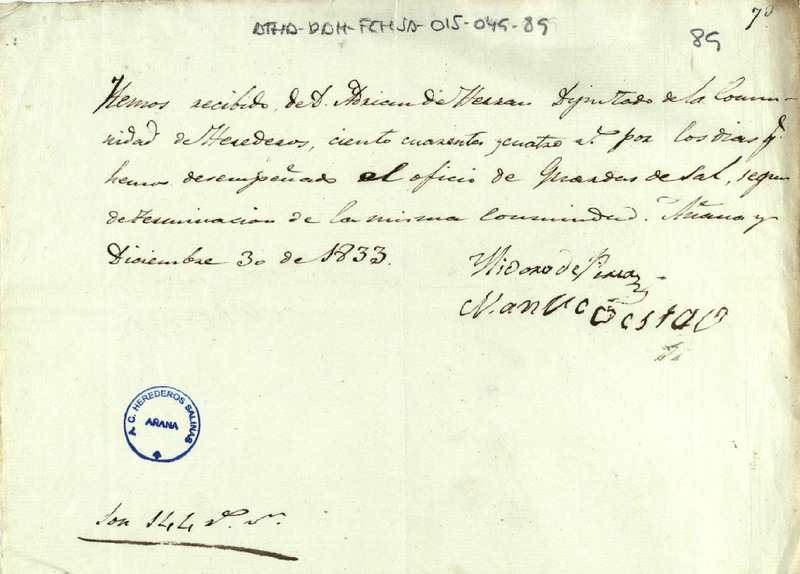 ATHA-DAH-FCHSA-015-045-89
7º
89
Hemos recibido, de D. Adrian de Herran Diputado de la Comu-
nidad de Herederos, ciento cuarenta y cuatro rs. por los dias q.
hemos desempeñado el oficio de Guardas de Sal, segun
determinacion de la misma Comunidad. Añana y
Diciembre 30 de 1833.
Ysidoro de
Manuel
A. C. HEREDEROS SALINAS
AÑANA
Son 144 rs. vn.